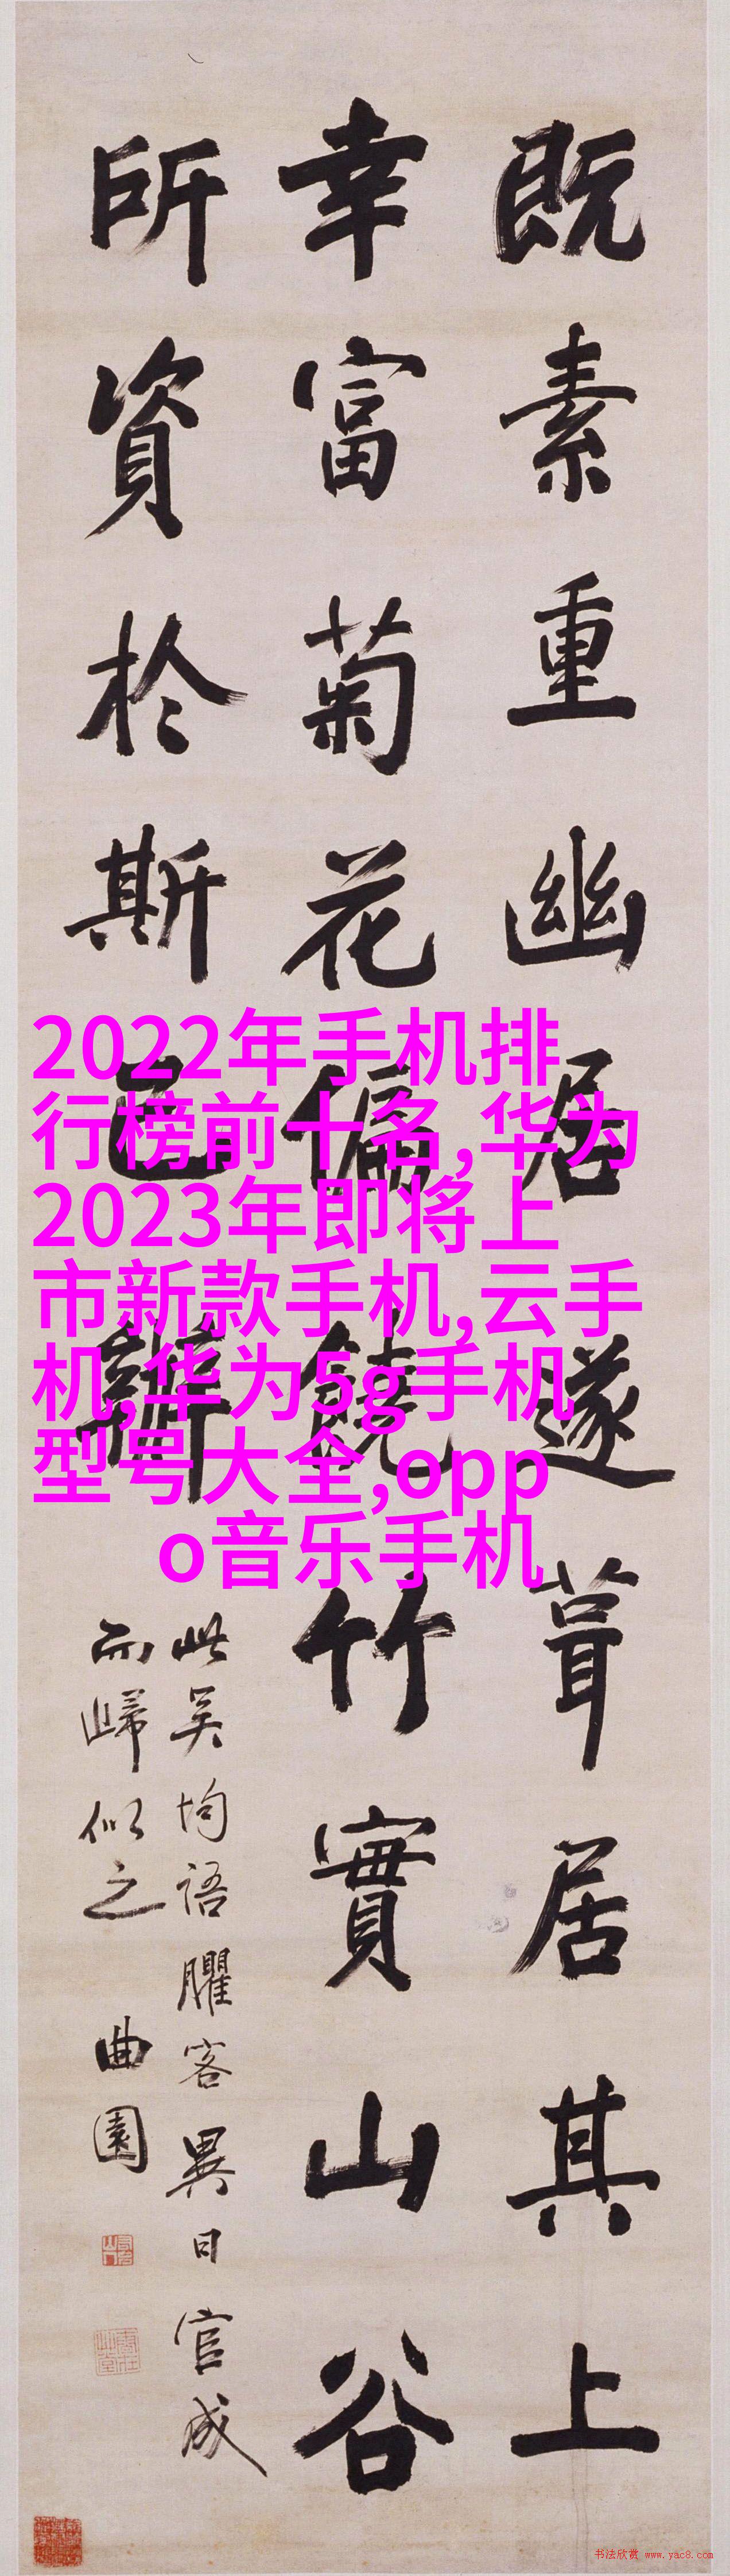 既素重幽居遂葺居其上
幸富菊花偏饒竹實山谷
所資於斯已辦
此吴均語臞客異日官成
而歸似之
曲園
2022年手机排
行榜前十名,华为
2023年即将上
市新款手机,云手
机,华为5g手机
型号大全,opp
o音乐手机
书法欣赏 www.yac8.com